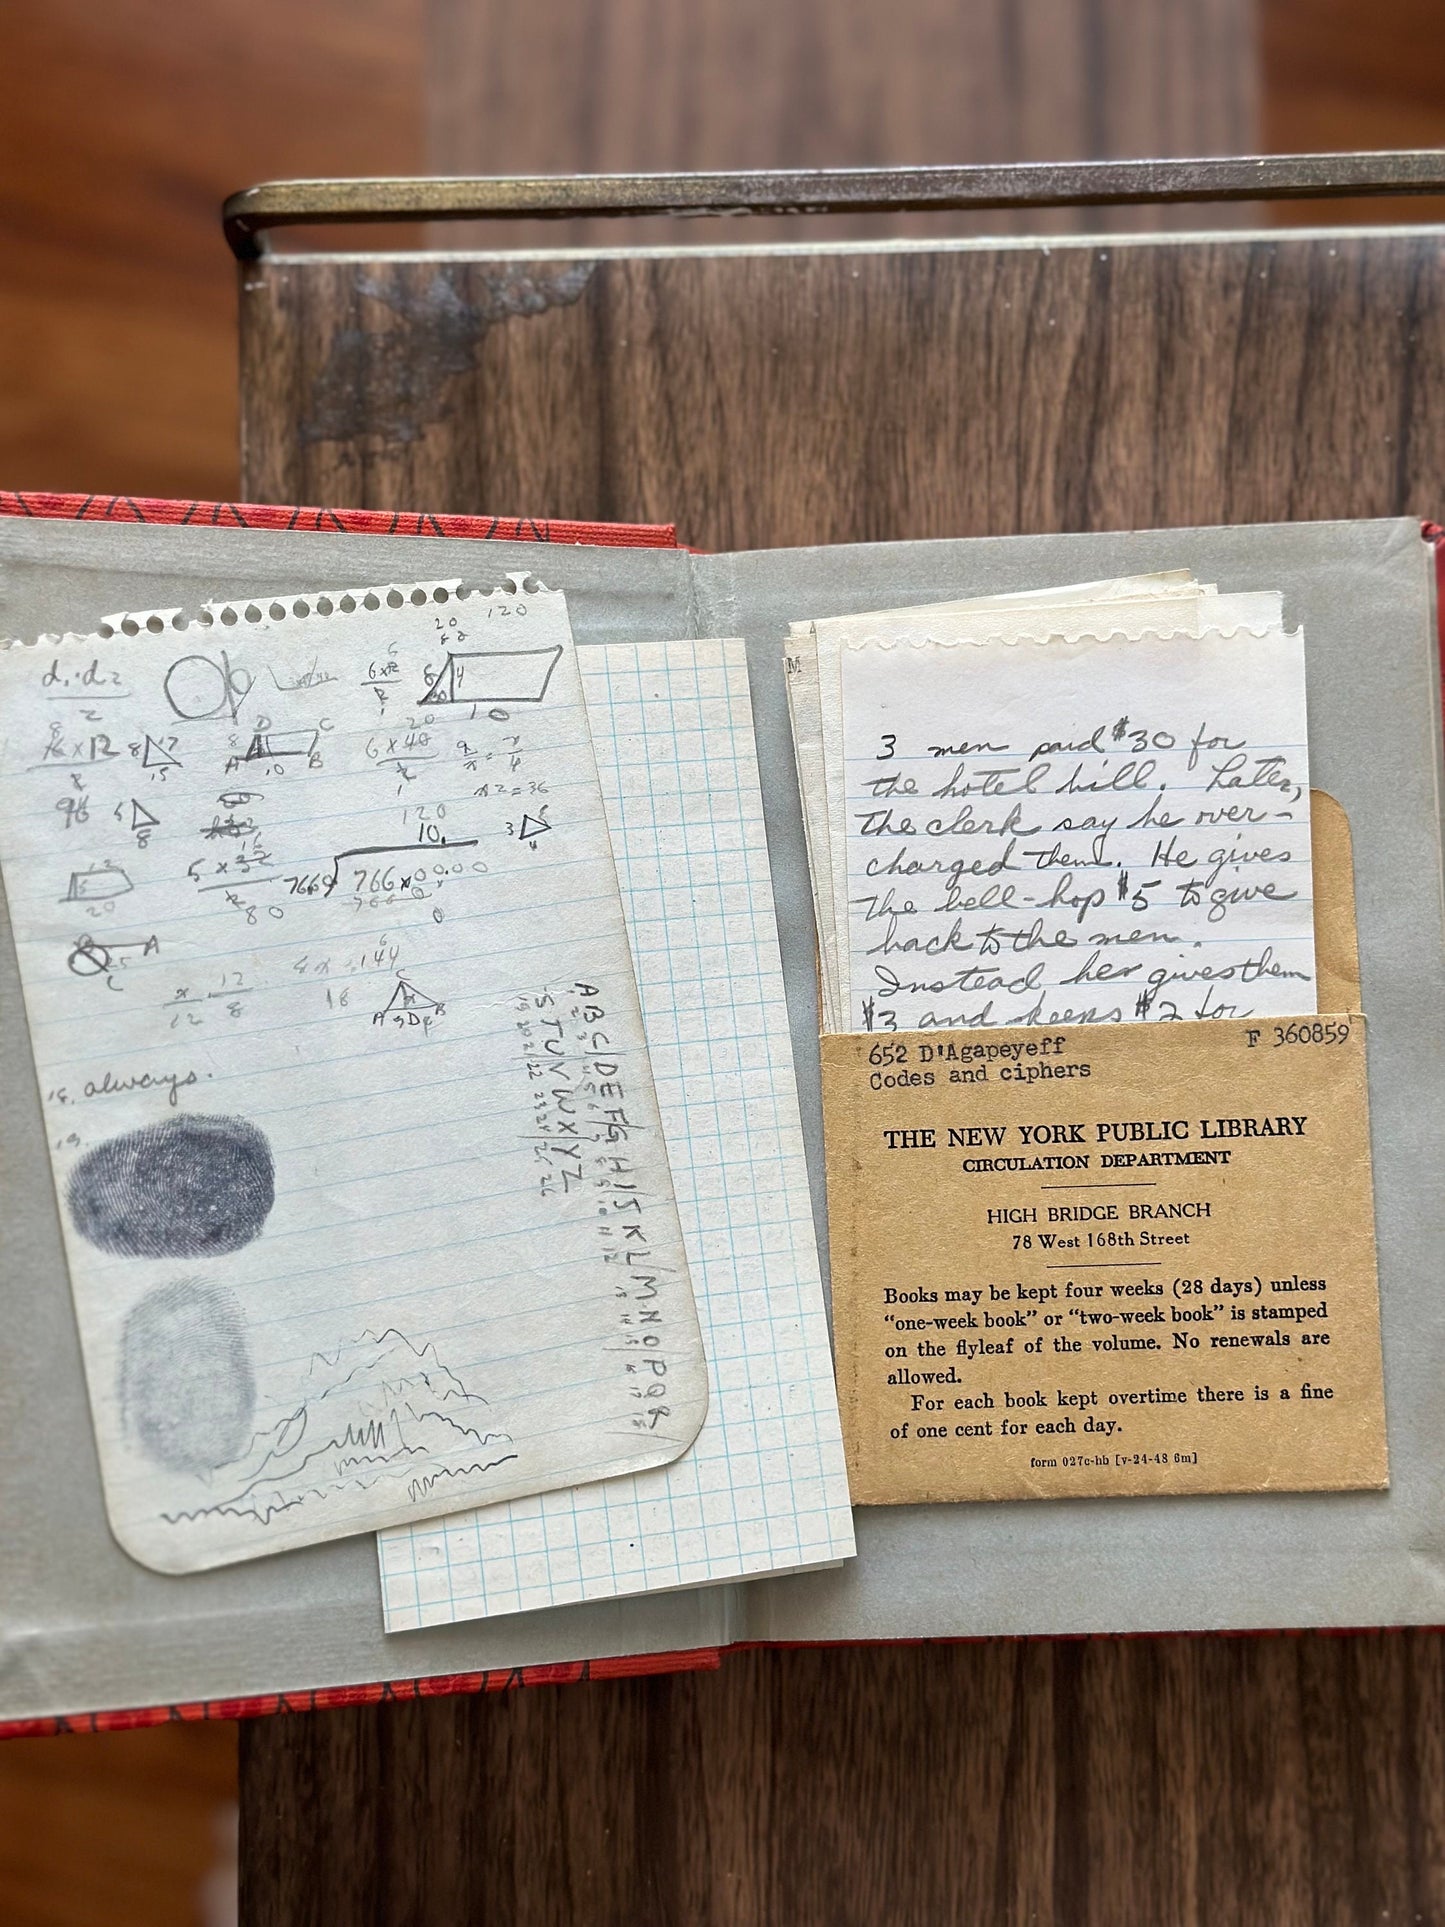 120
20
d₁·d₂
2
6
4
10
20
8
17
15
D
C
A
B
10
6 x 40
x2 = 36
96
5
8
120
10.
3
12
20
5 x
80
7669
0
A
C
x 12
12 8
4x = 144
18
C
x
A 9 D 4 B
18. always.
19.
A B C D E F G H I J K L M N O P Q R
S T U V W X Y Z
M
3 men paid $30 for
the hotel bill. Later,
the clerk say he over-
charged them. He gives
the bell-hop $5 to give
back to the men.
Instead her gives them
$3 and keeps $2 for
652 D'Agapeyeff F 360859
Codes and ciphers
THE NEW YORK PUBLIC LIBRARY
CIRCULATION DEPARTMENT
HIGH BRIDGE BRANCH
78 West 168th Street
Books may be kept four weeks (28 days) unless
"one-week book" or "two-week book" is stamped
on the flyleaf of the volume. No renewals are
allowed.
For each book kept overtime there is a fine
of one cent for each day.
form 027c-hb [v-24-48 6m]